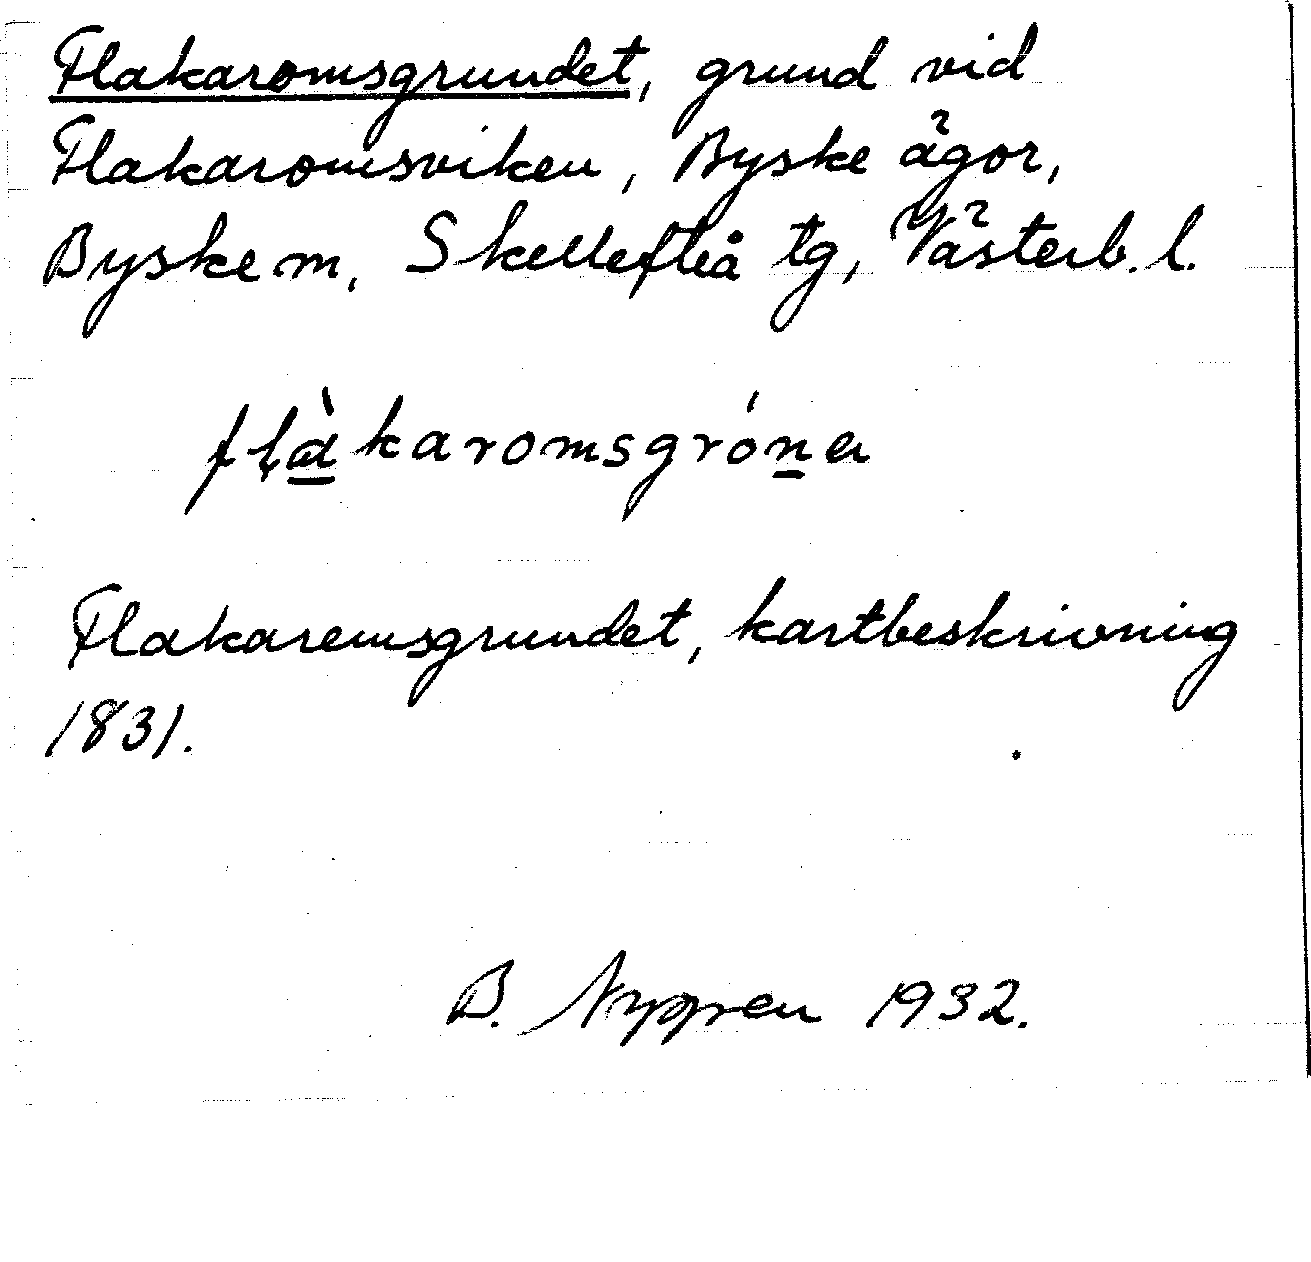 Flakaromsgrundet, grund vid
Flakaromsviken, Byske ägor,
Byske m, Skellefteå tg, Västerb. l.
flàkaromsgróna
Flakaremsgrundet, kartbeskrivning
1831.
B. Nygren 1932.